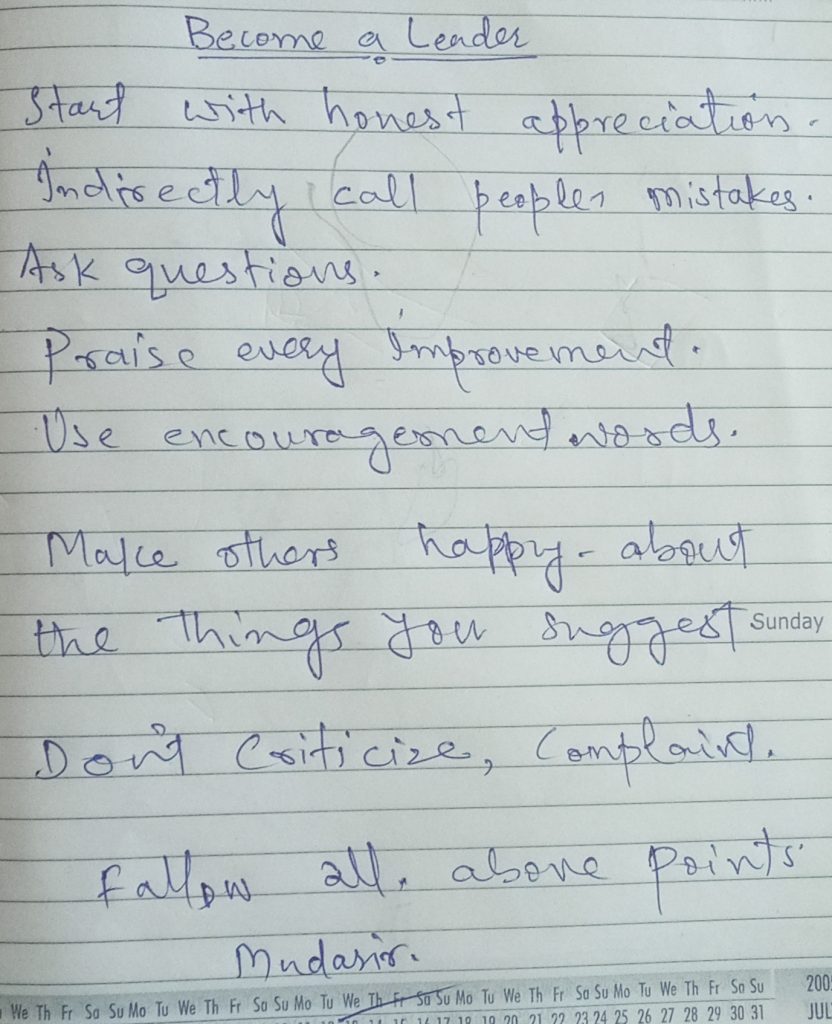 Become a Leader
Start with honest appreciation.
Indirectly call peoples mistakes.
Ask questions.
Praise every Improvement.
Use encouragement words.
Make others happy - about
the things you suggest
Sunday
Don't Criticize, Complaint.
Fallow all, above points
Mudasir.
We Th Fr Sa Su Mo Tu We Th Fr Sa Su Mo Tu We Th Fr Sa Su Mo Tu We Th Fr Sa Su Mo Tu We Th Fr Sa Su
16 17 18 19 20 21 22 23 24 25 26 27 28 29 30 31 JUL